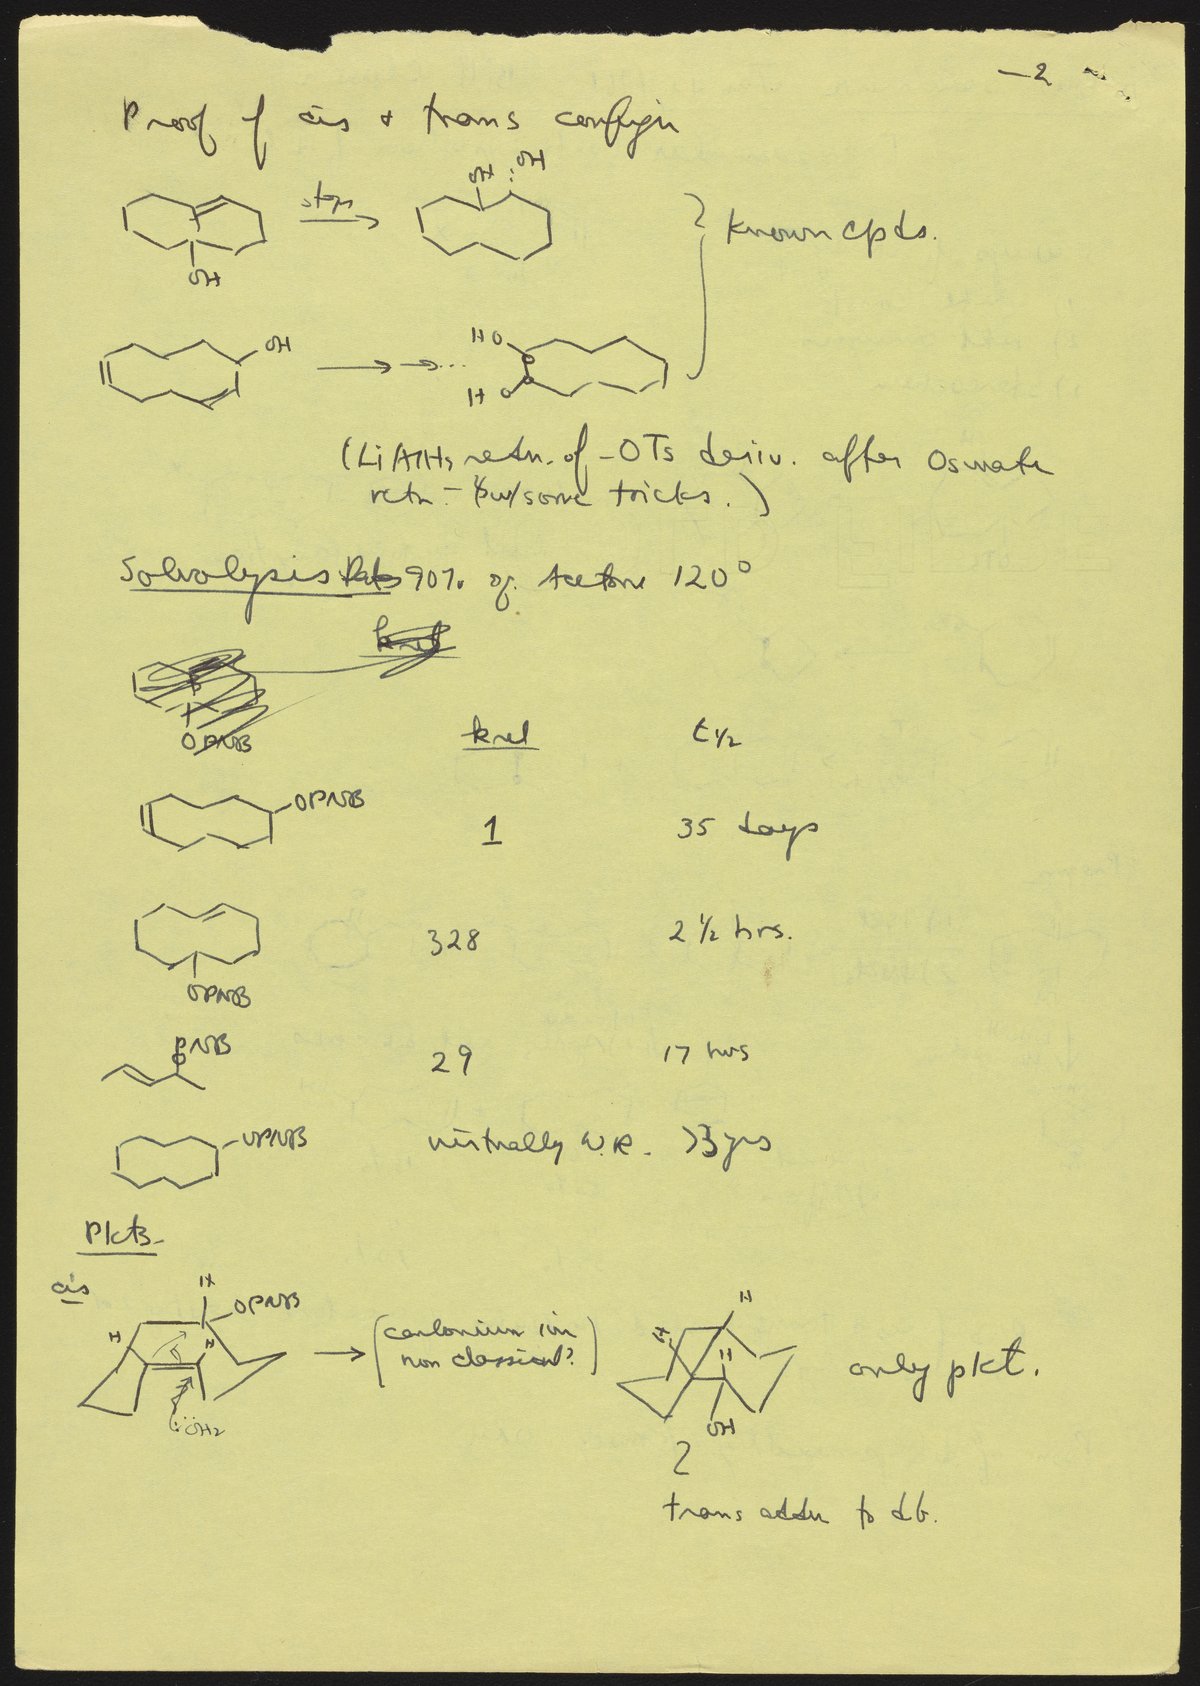 — 2
Proof of cis & trans confign
steps
OH
OH
OH
Known cpds.
OH
HO
HO
(LiAlH4 redn. of -OTs deriv. after Osmate
rctn - w/some tricks.)
Solvolysis Rates 90% aq. Acetone 120°
krel
OPNB
krel t ½
OPNB 1 35 days
328 2 ½ hrs.
OPNB
OPNB 29 17 hrs
OPNB virtually U.R. >3 yrs
Pdcts
cis
H
OPNB
H
H
:ÖH2
(carbonium ion
non classical?)
H
H
H
OH
only pdct.
trans addn to db.